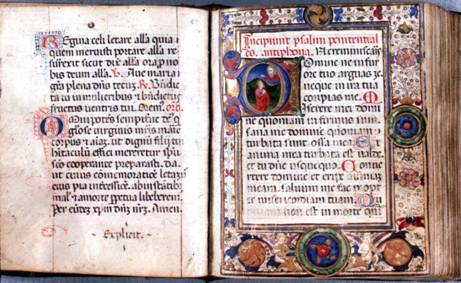 Regina celi letare alla quia
quem meruisti portare alla re
surrexit sicut dixit alla ora pro no
bis deum alla. V. Ave maria
gratia plena dns tecum. R. Bndicta
tu in mulieribus et bndictus
fructus ventris tui. Orem. oro
Omnipotens sempiterne deus q
gloriose virginis mris marie
corpus et aiaz. ut dignu filij tui
hitaculu effici mereretur spu
sco cooperante preparasti. da
ut cuius comemoratioe letamur
eius pia intercessioe. ab instatibus
malis et a morte ppetua liberemur.
Per eundez xpm dnm nrm. Amen.
Explicit.
Incipiunt psalmi penitential
es. antiphona. Ne reminiscaris
Domine ne in fur
ore tuo arguas me
neque in ira tua
corripias me. M
iserere mei domi
ne quoniam infirmus sum
sana me domine quoniam co
turbata sunt ossa mea. E
t anima mea turbata est valde
et tu domine usquequo. C
onvertere domine et eripe animam
meam. salvum me fac propt
er misericordiam tuam. Q
uoniam non est in morte qui